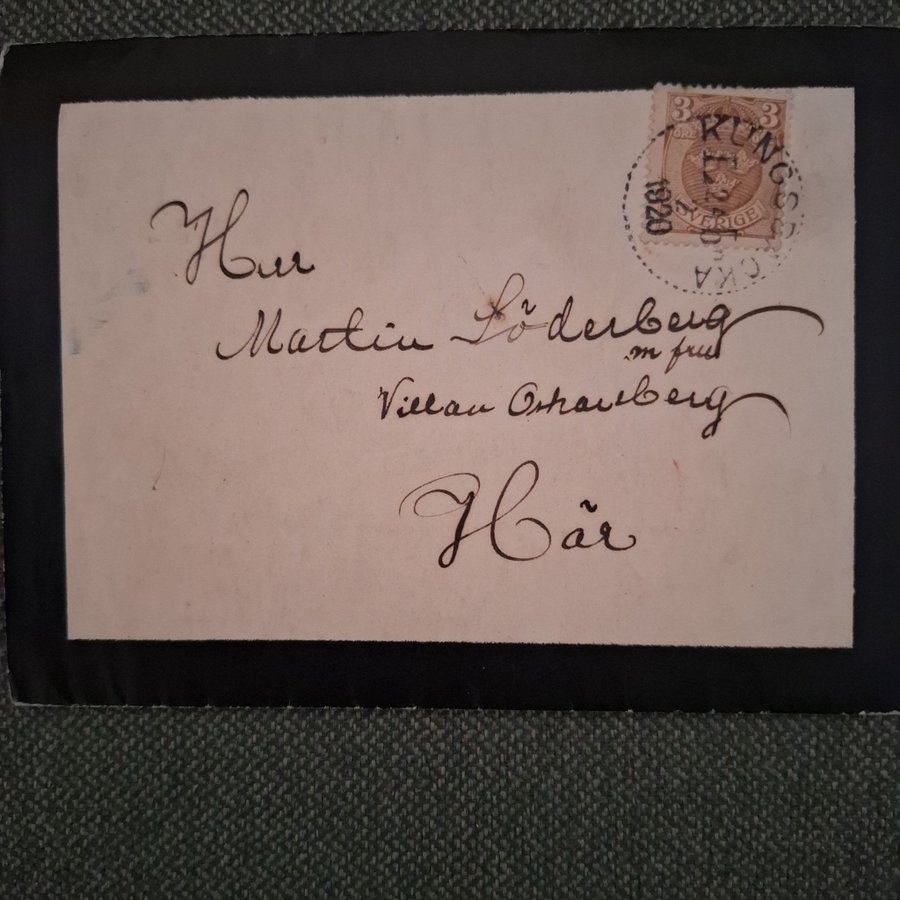 3 3
ÖRE
SVERIGE
KUNGSBACKA
1920
Herr
Martin Söderberg
m fru
Villan Oskarsberg
Här